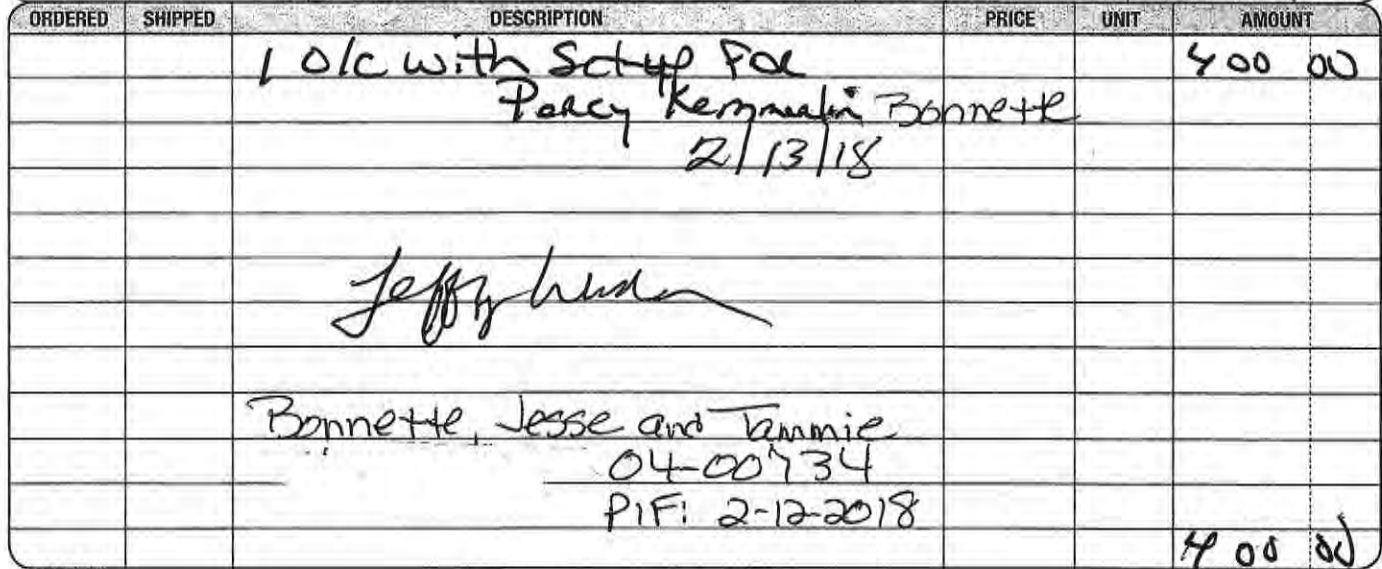 ORDERED SHIPPED DESCRIPTION PRICE UNIT AMOUNT
1 O/C with Setup For 400 00
Percy Bonnette
2/13/18
Bonnette, Jesse and Tammie
04-00734
PIF: 2-12-2018
400 00